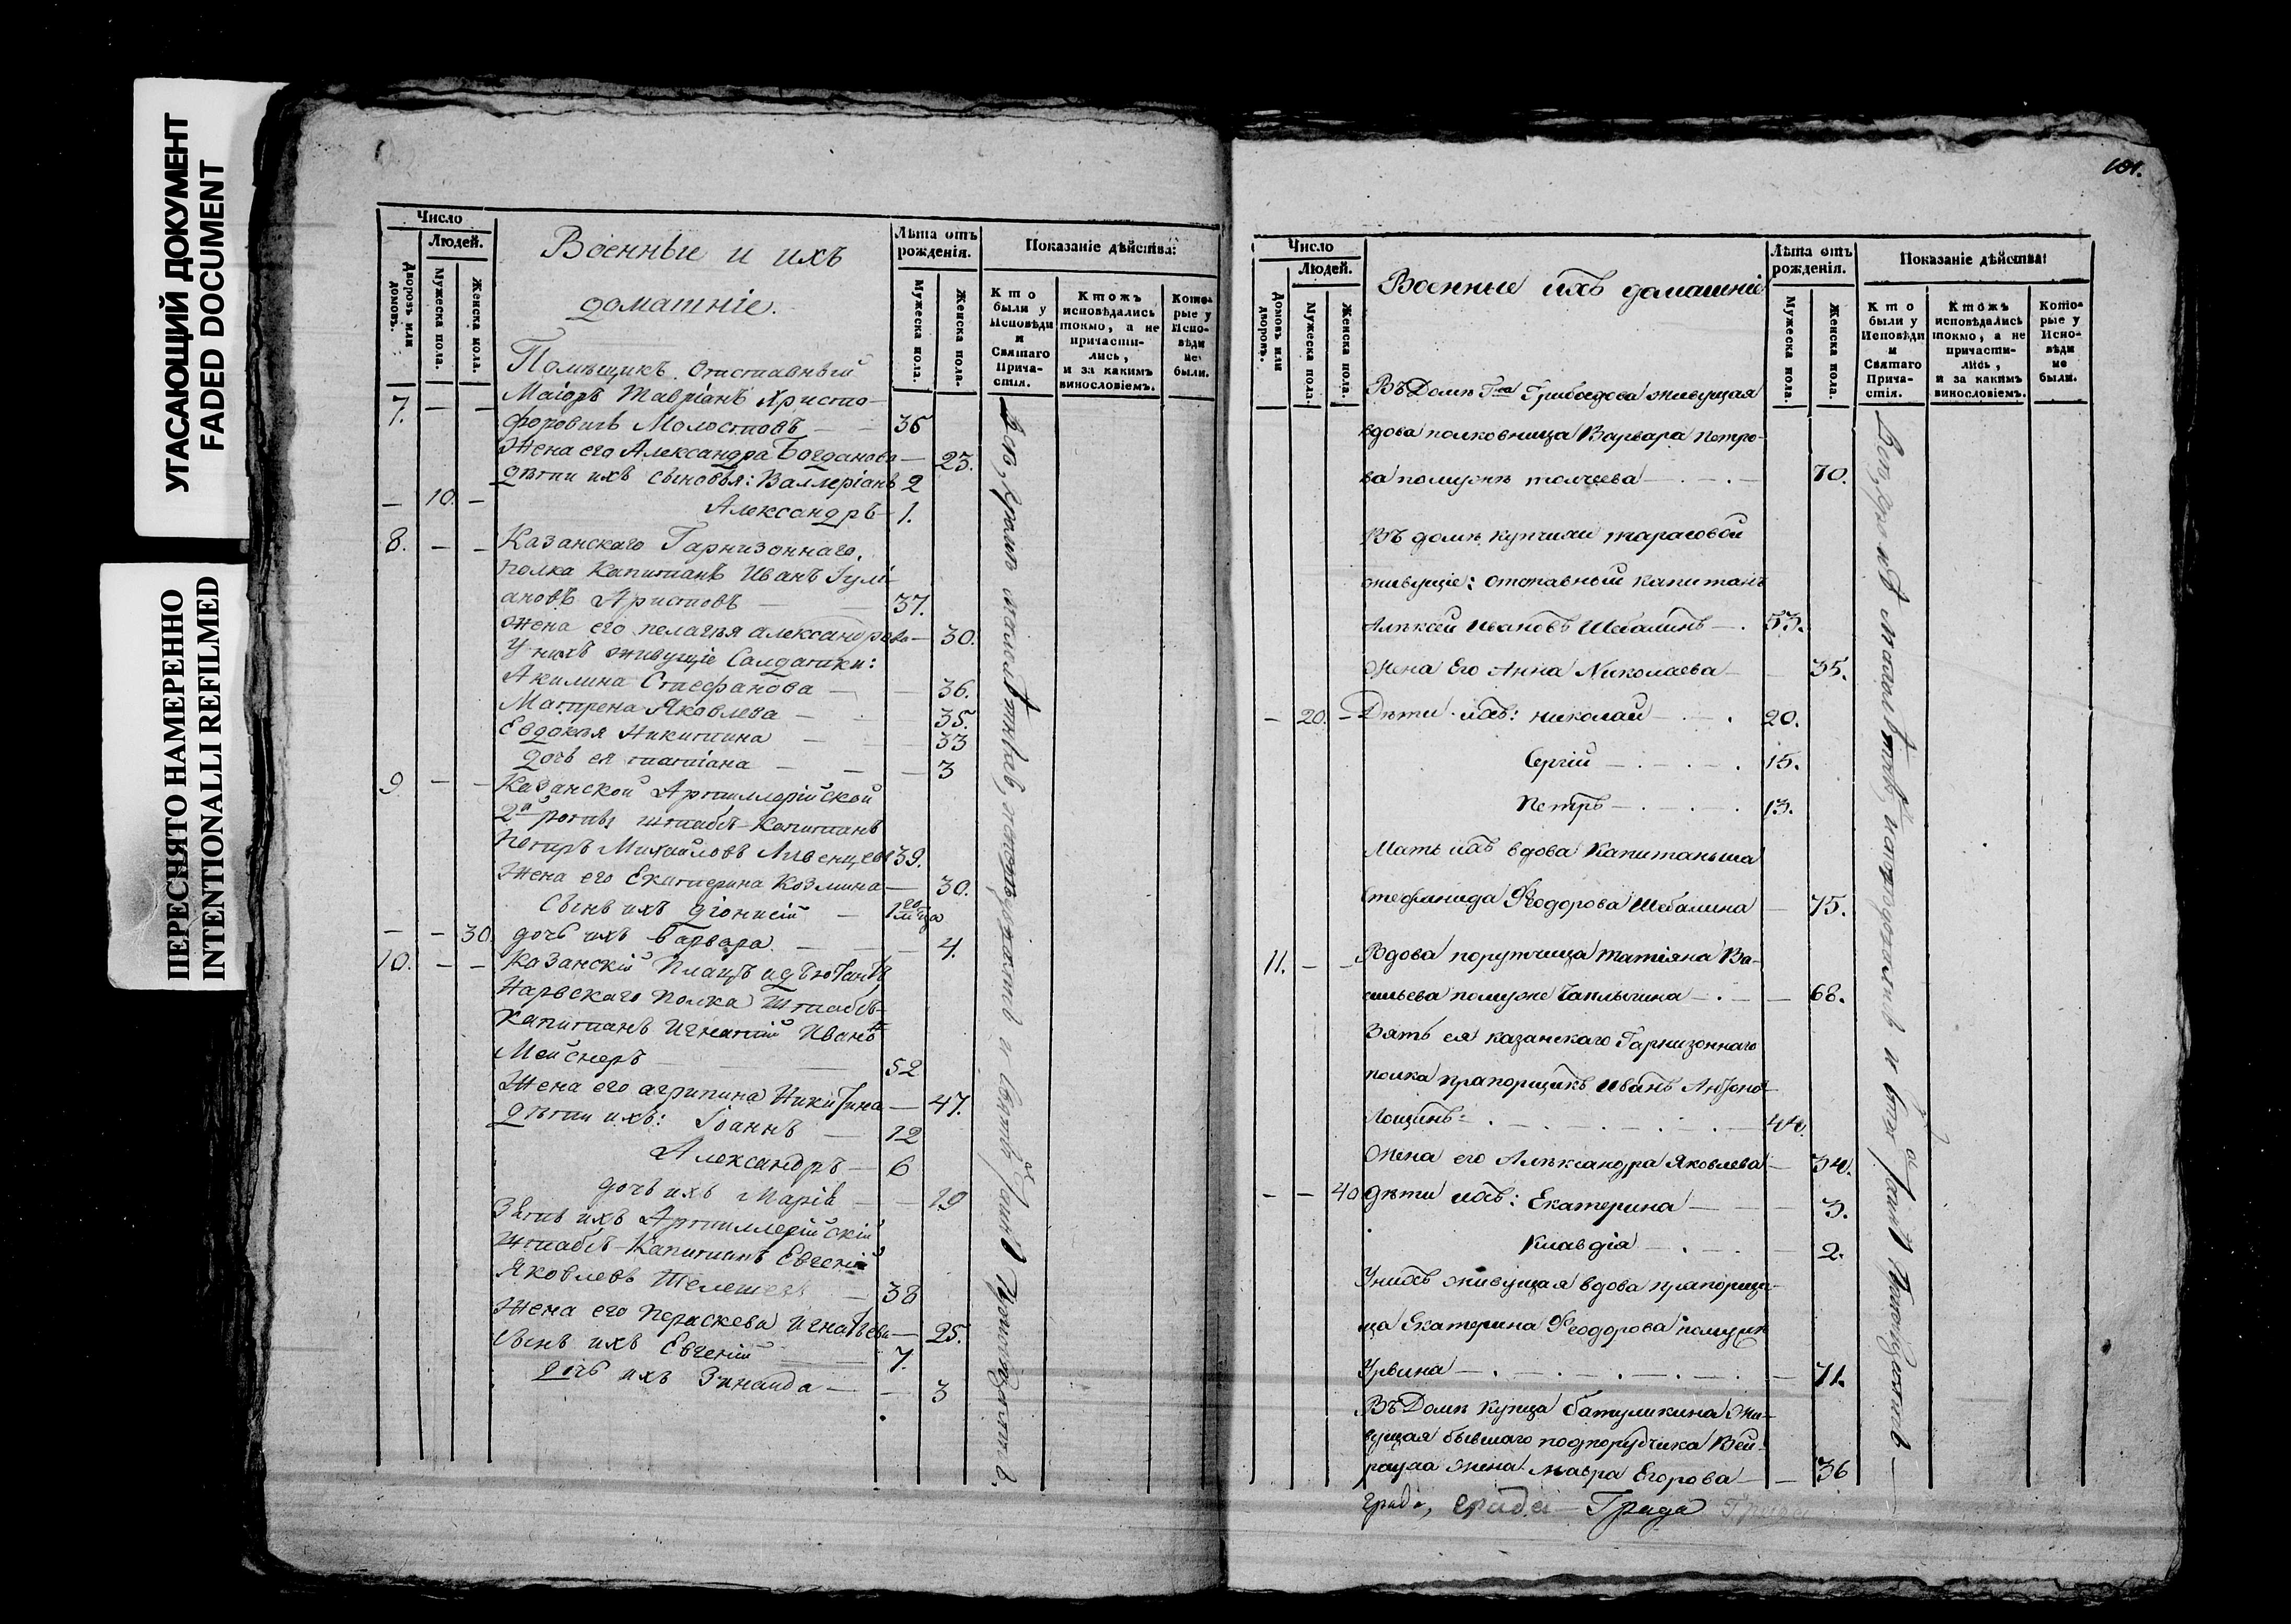 УГАСАЮЩИЙ ДОКУМЕНТ
FADED DOCUMENT
ПЕРЕСНЯТО НАМЕРЕННО
INTENTIONALLI REFILMED
Число
Людей.
Дворовъ или домовъ.
Мужеска пола.
Женска пола.
Военные и ихъ
домашніе.
Лѣта отъ рожденія.
Мужеска пола.
Женска пола.
Показаніе дѣйства:
Кто были у Исповѣди и Святаго Причастія.
Ктожъ исповѣдались токмо, а не причастились, и за какимъ винословіемъ.
Которые у Исповѣди не были.
Помѣщикъ Отставный
7. — — Маіоръ Тавріанъ Христо-
форовичь Молостовъ — — 36
Жена его Александра Богданова — 23.
дѣти ихъ сыновья: Валлеріанъ 2
— 10. — Александръ — 1.
8. — — Казанскаго Гарнизоннаго
полка Капитанъ Иванъ Іулі-
ановъ Аристовъ — 37.
Жена его пелагея александрова — 30.
У нихъ живущіе Салдатки:
Акилина Стефанова — 36.
Матрена Яковлева — 35.
Евдокея Никитина — 33
дочь ея татіана — — — 3
9 — — Казанской Артиллерійской
2й роты штабсъ-Капитанъ
Петръ Михайловъ 39.
Жена его Екатерина Козмина — 30.
Сынъ ихъ Діонисій — 1го м-ца
— — 30 дочь ихъ Варвара — — — 4.
10. — — Казанскій Плацъ адъютантъ
Нарвскаго полка Штабсъ-
Капитанъ Игнатій Иванъ
Мейснеръ — — 52
Жена его агрипина Никитина — 47.
дѣти ихъ: Іоаннъ — 12
Александръ — 6
дочь ихъ Марія — — 19
Зять ихъ Артиллерійскій
Штабсъ-Капитанъ Евгеній
Яковлевъ — 38
Жена его Параскева Игнатьева — 25.
Сынъ ихъ Евгеній — 7.
дочь ихъ Зинаида — — 3
101.
Число
Людей.
Домовъ или дворовъ.
Мужеска пола.
Женска пола.
Военные ихъ домашніе
Лѣта отъ рожденія.
Мужеска пола.
Женска пола.
Показаніе дѣйства:
Кто были у Исповѣди и Святаго Причастія.
Ктожъ исповѣдались токмо, а не причастились, и за какимъ винословіемъ.
Которые у Исповѣди не были.
Въ Домѣ Гна Грибоедова живущая
вдова полковница Варвара Петро-
ва помужѣ толчеева — . — . — 70.
Въ домѣ купчихи тарасовой
живущіе: отставный капитанъ
Алѣксей Ивановъ Шебалинъ — . 53.
Жена Его Анна Николаева — 35.
— 20. — Дѣти ихъ: николай — . — . 20.
Сергій — . — . — . 15.
Петръ — . — . — . 13.
Мать ихъ вдова Капитанша
Стефанида Ѳеодорова Шебалина — 75.
11. — — Вдова порутчица татіяна Ва-
сильева помуже Чаплыгина — . — — 68.
Зять ея казанскаго Гарнизоннаго
полка прапорщикъ Иванъ
Лощинъ — 44.
Жена его Алѣксандра Яковлева — 34.
— — 40 дѣти ихъ: Екатерина — — — 3.
Клавдія — . — . — 2.
Унихъ живущая вдова прапорщи-
ца Екатерина Ѳеодорова помужѣ
Урвина — . — . — . — . — — 71.
Въ Домѣ Купца батуликина Жи-
вущая бывшаго подпорутчика Вей-
жена мавра Егорова — — 36
Града